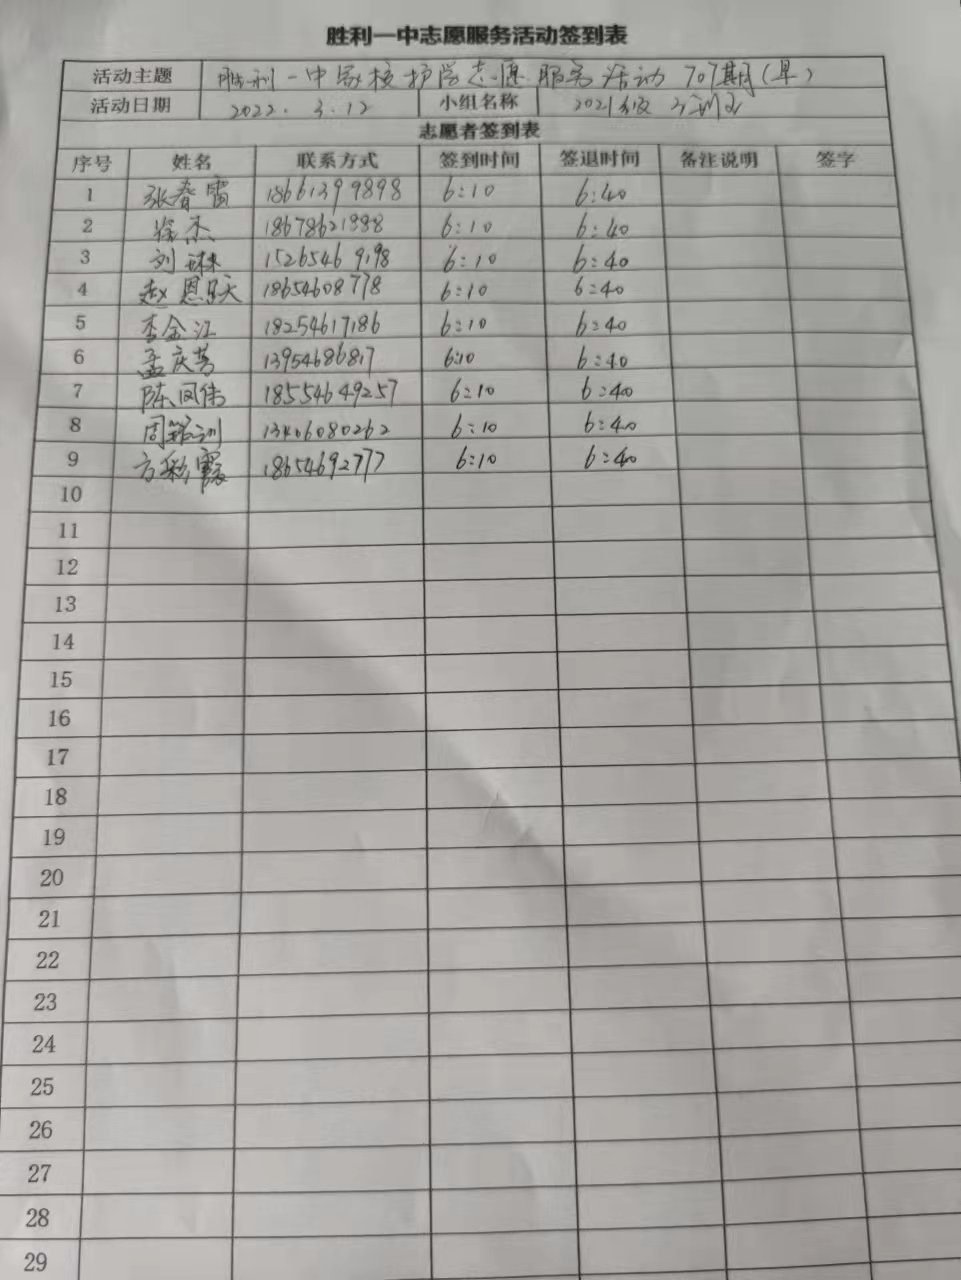 胜利一中志愿服务活动签到表
活动主题 胜利一中家校护学志愿服务活动 707期(早)
活动日期 2022.3.12 小组名称 2021级
志愿者签到表
序号 姓名 联系方式 签到时间 签退时间 备注说明 签字
1 张春雷 18661399898 6:10 6:40
2 徐杰 18678621888 6:10 6:40
3 刘琳 15265469198 6:10 6:40
4 赵恩天 18654608778 6:10 6:40
5 李金江 18254617186 6:10 6:40
6 孟庆芳 13954686817 6:10 6:40
7 陈凤伟 18554649257 6:10 6:40
8 周 13406080262 6:10 6:40
9 方彩霞 18654692777 6:10 6:40
10
11
12
13
14
15
16
17
18
19
20
21
22
23
24
25
26
27
28
29